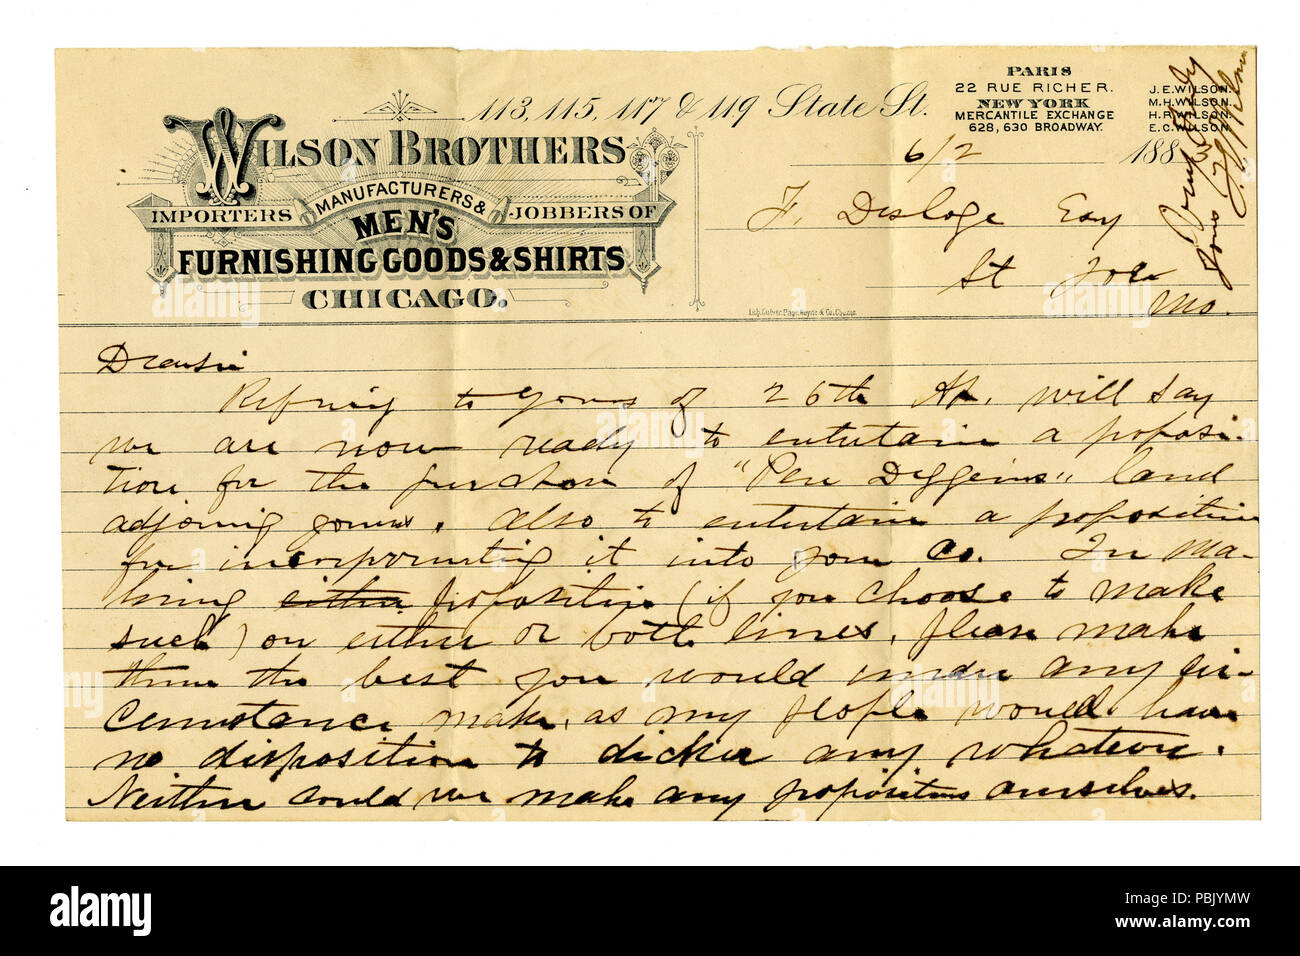 113, 115, 117 & 119 State St.
PARIS
22 RUE RICHER.
NEW YORK
MERCANTILE EXCHANGE
628, 630 BROADWAY.
J.E. WILSON.
M.H. WILSON.
H.R. WILSON.
E.C. WILSON.
WILSON BROTHERS
MANUFACTURERS &
IMPORTERS JOBBERS OF
MEN'S
FURNISHING GOODS & SHIRTS
CHICAGO.
6/2 188
F. Desloge Esq
St Joe
Mo.
Lith. Culver, Page, Hoyne & Co. Chicago
Dear Sir
Refering to yours of 26th Ap. will say
we are now ready to entertain a proposi-
tion for the purchase of "Pen Diggins" land
adjoining yours. Also to entertain a proposition
for incorporating it into your Co. In ma-
king either proposition (if you choose to make
such) on either or both lines, please make
them the best you would under any cir-
cumstances make, as my people would have
no disposition to dicker any whatever.
Neither could we make any propositions ourselves.
Yours Truly
alamy
Image ID: PBJYMW
www.alamy.com